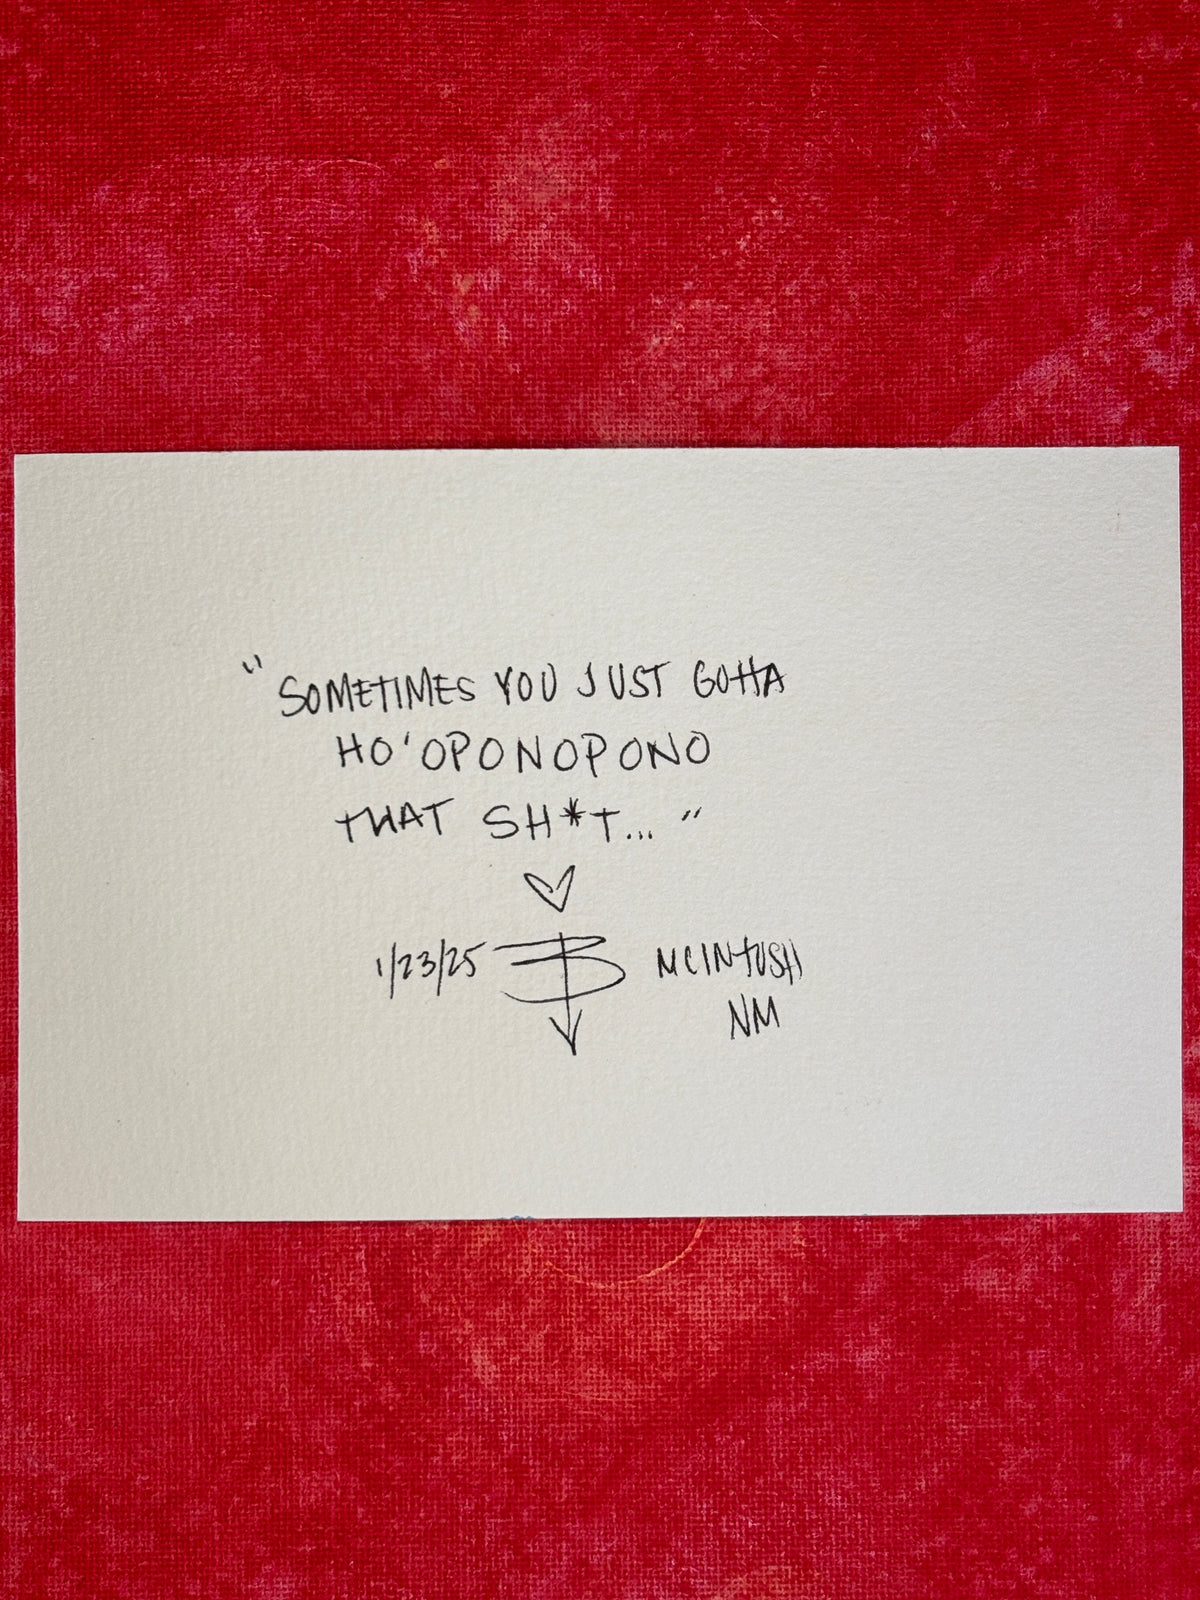 "SOMETIMES YOU JUST GOTTA
HO'OPONOPONO
THAT SH*T..."
1/23/25 MCINTOSH
NM